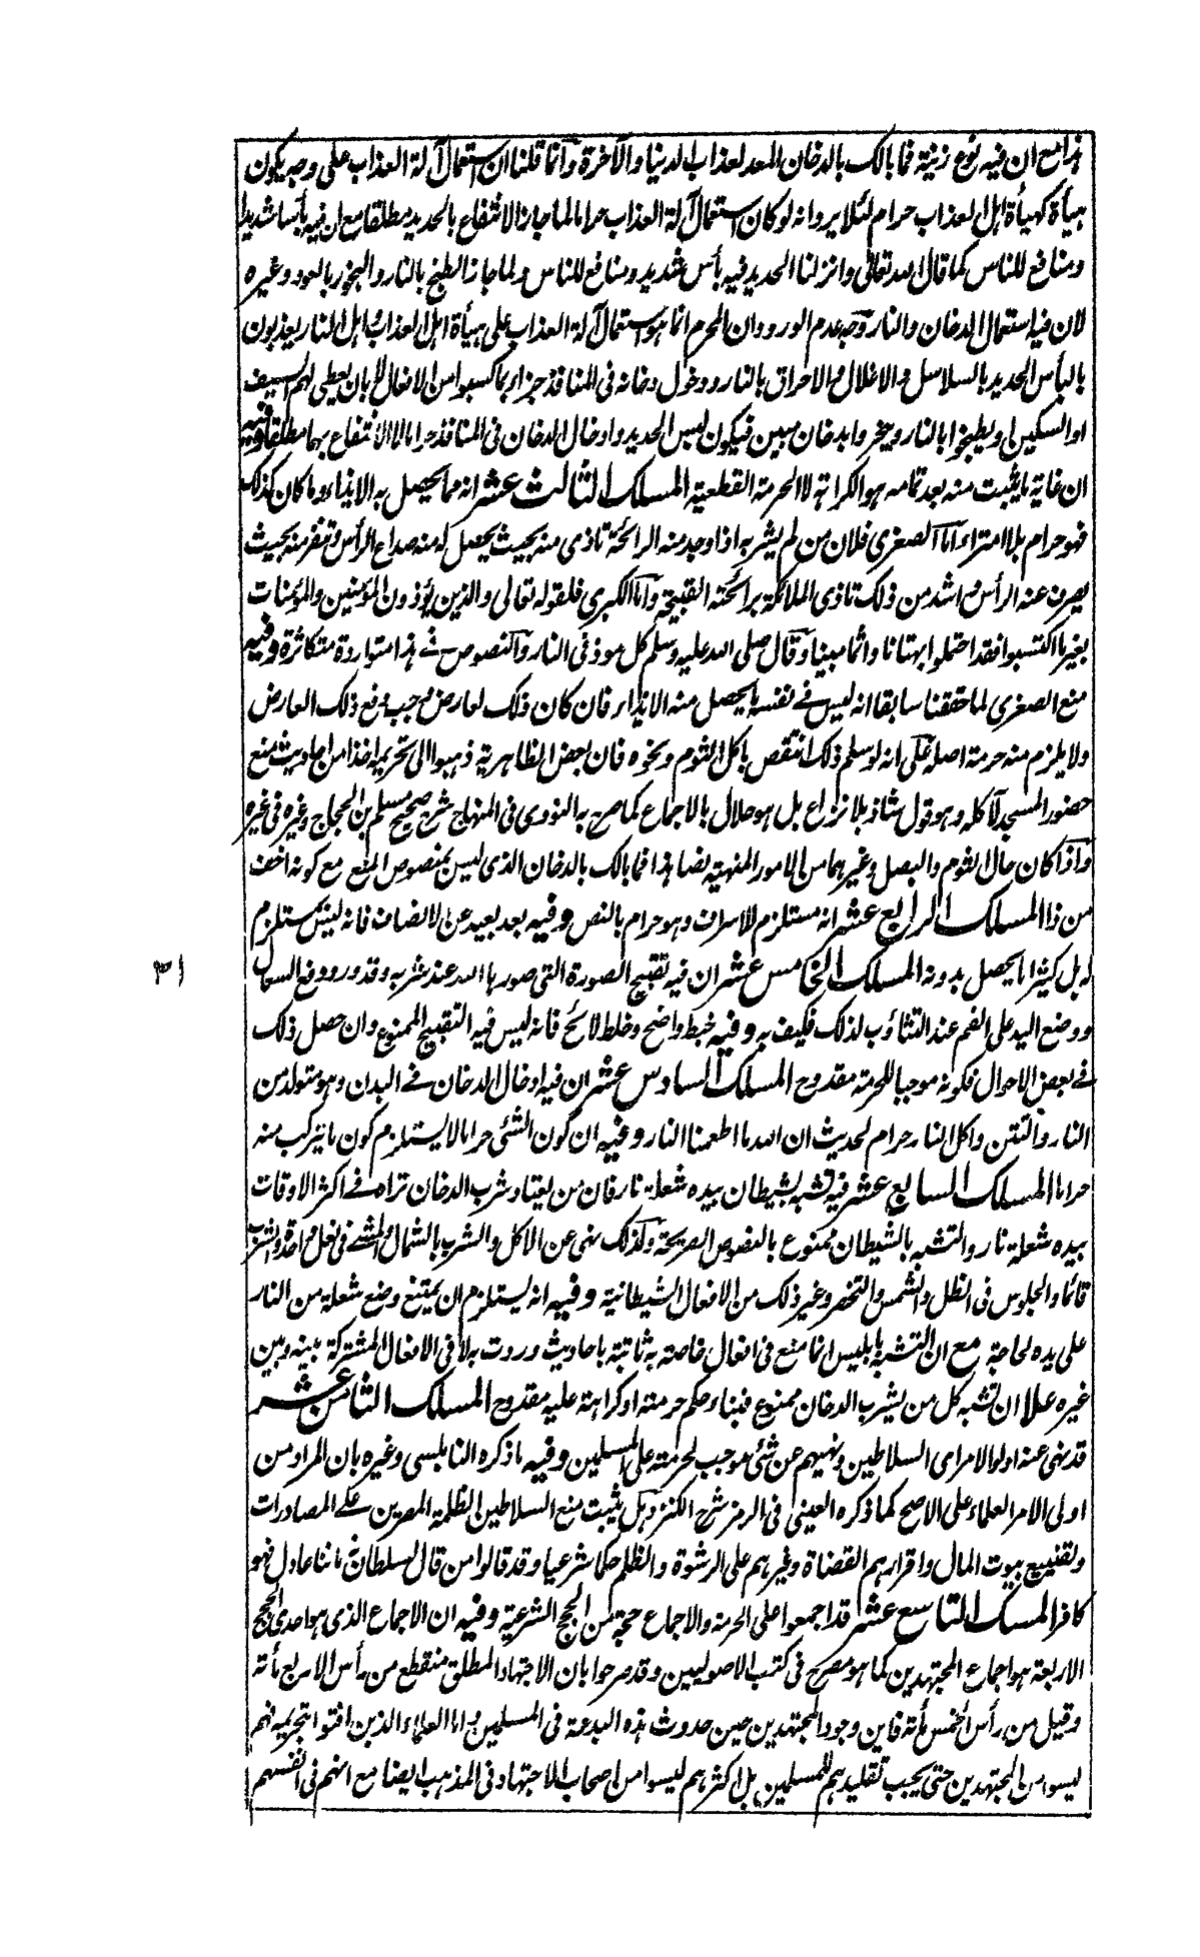 هذا مع ان فيه نوع زينة فما بالك بالدخان المعد لعذاب الدنيا والآخرة وانما قلنا ان استعمال آلة العذاب على وجه يكون
هيأة كهيأة اهل العذاب حرام لئلا يرد انه لو كان استعمال آلة العذاب حراما لما جاز الانتفاع بالحديد مطلقا مع ان فيه بأسا شديدا
ومنافع للناس كما قال الله تعالى وانزلنا الحديد فيه بأس شديد ومنافع للناس ولما جاز الطبخ بالنار والبخور بالعود وغيره
لان فيه استعمال الدخان والنار وجه عدم الورود ان المحرم انما هو استعمال آلة العذاب على هيأة اهل العذاب اهل النار يعذبون
بالبأس الحديد بالسلاسل والاغلال والاحراق بالنار ودخول دخانه فى المنافذ جزاء بما كسبوا من الافعال لا بان يعطى لهم السيف
او السكين او يطبخوا بالنار ويبخروا بدخان مبين فيكون لبس الحديد وادخال الدخان فى المنافذ حراما لا الانتفاع بهما مطلقا وفيه
ان غاية ما يثبت منه بعد تمامه هو الكراهة لا الحرمة القطعية المسلك الثالث عشر انه مما يحصل به الايذاء وما كان كذلك
فهو حرام بلا امتراء اما الصغرى فلان من لم يشربه اذا وجد منه الرائحة تاذى منه بحيث يحصل له منه صداع الرأس وتنفر منه بحيث
يصرف عنه الرأس واشد من ذلك تاذى الملائكة برائحته القبيحة واما الكبرى فلقوله تعالى والذين يؤذون المؤمنين والمؤمنات
بغير ما اكتسبوا فقد احتملوا بهتانا واثما مبينا وقال صلى الله عليه وسلم كل موذ فى النار والنصوص فى هذا متواردة متكاثرة وفيه
منع الصغرى لما حققنا سابقا انه ليس فى نفسه ما يحصل منه الايذاء فان كان ذلك لعارض وجب دفع ذلك العارض
ولا يلزم منه حرمة اصله على انه لو سلم ذلك انتقض باكل الثوم ونحوه فان بعض الظاهرية ذهبوا الى تحريمه اخذا من احاديث منع
حضور المسجد لآكله وهو قول شاذ بلا نزاع بل هو حلال بالاجماع كما صرح به النووى فى المنهاج شرح صحيح مسلم بن الحجاج وغيره فى غيره
واذا كان حال الثوم والبصل وغيرهما من الامور المنهية نصا هذا فما بالك بالدخان الذى ليس بمنصوص المنع مع كونه اخف
من ذا المسلك الرابع عشر انه مستلزم للاسراف وهو حرام بالنص وفيه بعد بعيد عن الانصاف فانه ليس بمستلزم
له بل كثيرا ما يحصل بدونه المسلك الخامس عشر ان فيه تقبيح الصورة التى صورها الله عند شربه وقد ورد دفع السعال
ووضع اليد على الفم عند التثاؤب لذلك فكيف به وفيه خبط واضح وخلط لائح فانه ليس فيه التقبيح الممنوع وان حصل ذلك
فى بعض الاحوال فكونه موجبا للحرمة مقدوح المسلك السادس عشر ان فيه ادخال الدخان فى البدن وهو متولد من
النار والتتن واكل النار حرام لحديث ان الله ما اطعمنا النار وفيه ان كون الشئ حراما لا يستلزم كون ما يتركب منه
حراما المسلك السابع عشر فيه تشبه بشيطان بيده شعلة نار فان من يعتاد شرب الدخان تراه فى اكثر الاوقات
بيده شعلة نار والتشبه بالشيطان ممنوع بالنصوص الصريحة ولذلك نهى عن الاكل والشرب بالشمال والمشى فى نعل واحدة والشرب
قائما والجلوس فى الظل والشمس والتخصر وغير ذلك من الافعال الشيطانية وفيه انه يستلزم ان يمتنع وضع شعلة من النار
على يده لحاجة مع ان التشبه بابليس انما منع فى افعال خاصة به ثابتة باحاديث وردت به لا فى الافعال المشتركة بينه وبين
غيره علا ان تشبه كل من يشرب الدخان ممنوع فبناء حكم حرمته او كراهته عليه مقدوح المسلك الثامن عشر
قد نهى عنه اولو الامر اى السلاطين ونهيهم عن شئ موجب لحرمته على المسلمين وفيه ما ذكره النابلسى وغيره بان المراد من
اولى الامر العلماء على الاصح كما ذكره العينى فى الرمز شرح الكنز وهل يثبت منع السلاطين الظلمة المصرين على المصادرات
وتضييع بيوت المال واقرارهم القضاة وغيرهم على الرشوة والظلم حكما شرعيا وقد قالوا من قال لسلطان زماننا عادل فهو
كافر المسلك التاسع عشر قد اجمعوا على الحرمة والاجماع حجة من الحجج الشرعية وفيه ان الاجماع الذى هو احدى الحجج
الاربعة هو اجماع المجتهدين كما هو مصرح فى كتب الاصوليين وقد صرحوا بان الاجتهاد المطلق منقطع من رأس الاربع مأته
وقيل من رأس الخمس مأته فاين وجود المجتهدين حين حدوث هذه البدعة فى المسلمين واما العلماء الذين افتوا بتحريمه فهم
ليسوا من المجتهدين حتى يجب تقليدهم للمسلمين بل اكثرهم ليسوا من اصحاب الاجتهاد فى المذهب ايضا مع انهم فى انفسهم